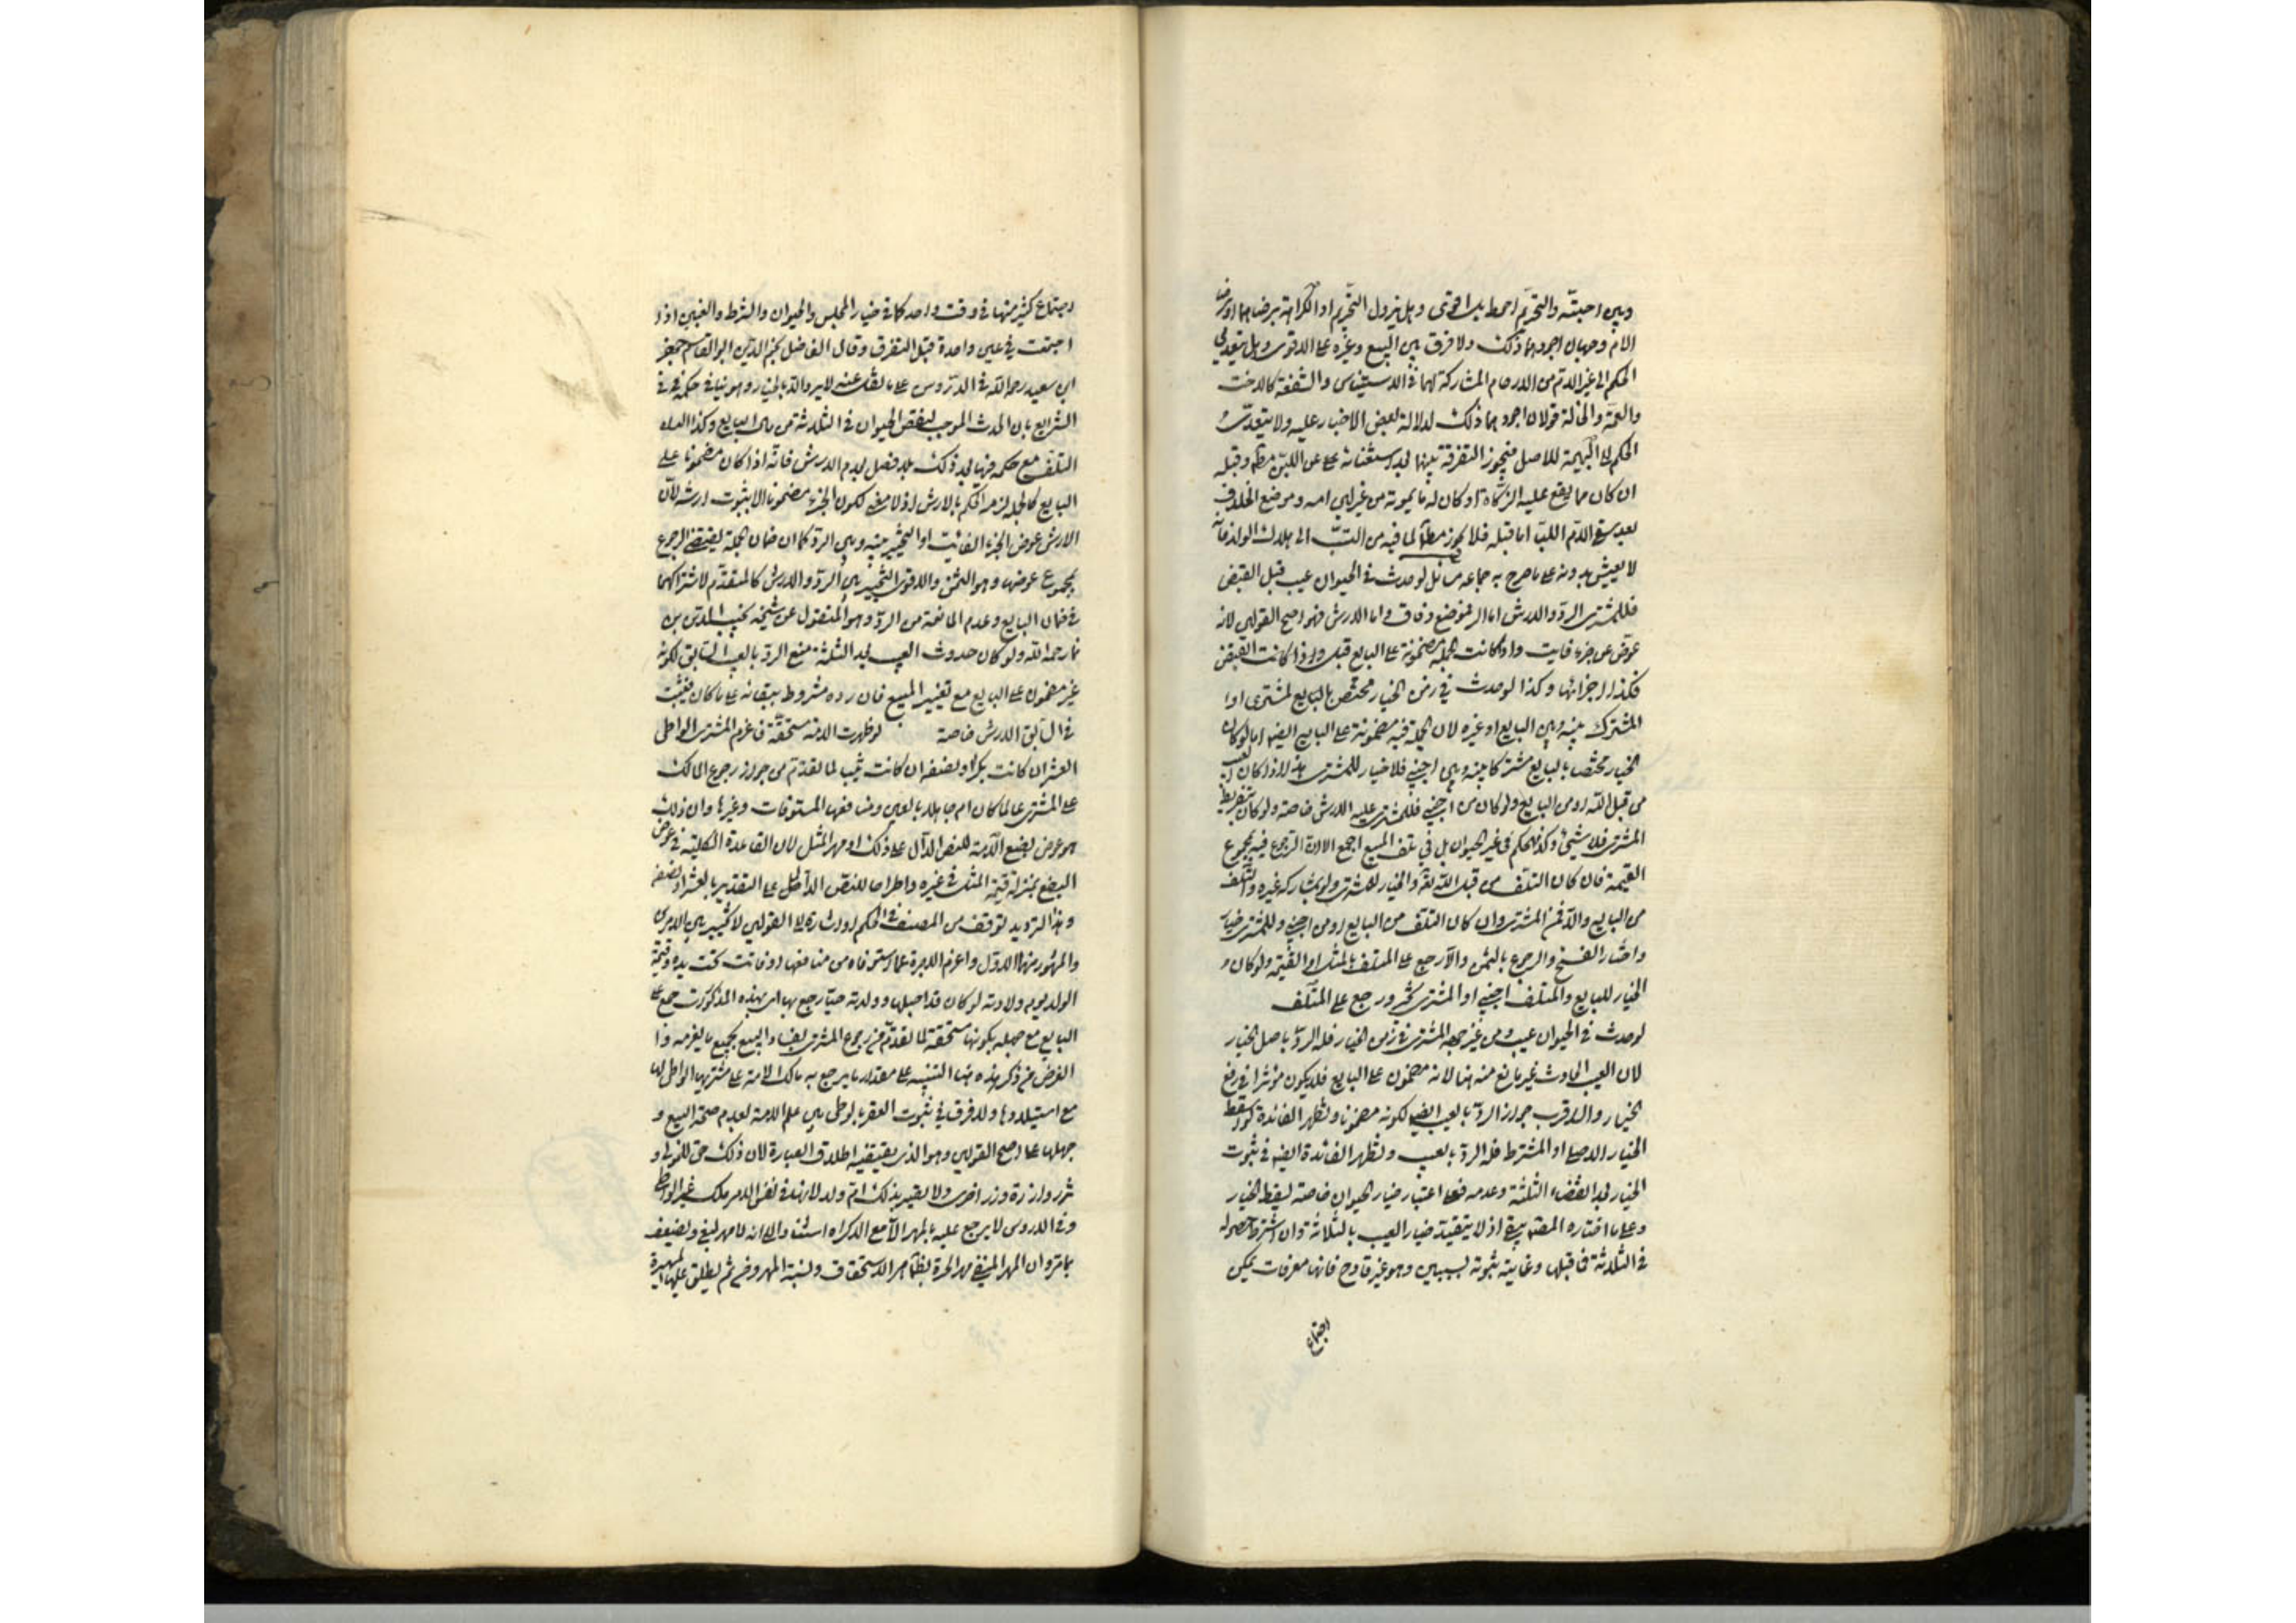 وبين احبته والتحريم احوط بل اقوى وهل يزول التحريم او الكراهة برضاهما او رضا
الام وجهان اجودهما ذلك ولا فرق بين البيع وغيره على الاقوى وهل يتعدى
الحكم الى غير الام من الارحام المشاركة لها في الاستيناس والشفقة كالاخت
والعمة والخالة قولان اجودهما ذلك لدلالة بعض الاخبار عليه ولا يتعدى
الحكم الى البهيمة للاصل فيجوز التفرقة بينهما بعد استغنائه عن اللبن مطلقا وقبله
ان كان مما يقع عليه الزكاة او كان له ما يمونه من غير لبن امه وموضع الخلاف
بعد سقي الام اللبا اما قبله فلا يجوز مطلقا لما فيه من التسبب الى هلاك الولد فانه
لا يعيش بدونه على ما صرح به جماعة لو حدث في الحيوان عيب قبل القبض
فللمشتري الرد والارش اما الرد فموضع وفاق واما الارش فهو اصح القولين لانه
عوض عن جزء فايت واذا كانت الجملة مضمونة على البايع قبل القبض
فكذا اجزائها وكذا لو حدث في زمن الخيار مختص بالبايع لمشتري او
المشترك بينه وبين البايع او غيره لان الجملة فيه مضمونة على البايع ايضا اما لو كان
الخيار مختصا بالبايع او مشتركا بينه وبين اجنبي فلا خيار للمشتري هذا اذا كان العيب
من قبل الله او من البايع ولو كان من اجنبي فللمشتري عليه الارش خاصة ولو كان بتفريط
المشتري فلا شيء وكذا الحكم في غير الحيوان بل في تلف المبيع اجمع الا ان الرجوع فيه بمجموع
القيمة فان كان التلف من قبل الله تع والخيار للمشتري ولو بمشاركة غيره والتلف
من البايع والا فمن المشتري وان كان التلف من البايع او من اجنبي وللمشتري خيار
واختار الفسخ والرجوع بالثمن والا رجع على المتلف بالمثل او القيمة ولو كان
الخيار للبايع والمتلف اجنبي او المشتري تخير ورجع على المتلف
لو حدث في الحيوان عيب من غير جهة المشتري في زمن الخيار فله الرد باصل الخيار
لان العيب الحادث غير مانع منه هنا لانه مضمون على البايع فلا يكون مؤثرا في رفع
الخيار والاقرب جواز الرد بالعيب ايضا لكونه مضمونا وتظهر الفائدة لو اسقط
الخيار الاصلي او المشترط فله الرد بالعيب وتظهر الفائدة ايضا في ثبوت
الخيار بعد انقضاء الثلثة وعدمه فعلى اعتبار خيار الحيوان خاصة يسقط الخيار
وعلى ما اختاره المصنف يبقى اذ لا يتقيد خيار العيب بالثلاثة وان اشترط حصوله
في الثلاثة فما قبلها وغايته ثبوته بسببين وهو غير قادح فانها معرفات يمكن
اجتماع
اجتماع كثير منها في وقت واحد كما في خيار المجلس والحيوان والشرط والغبن اذا
اجتمعت في عين واحدة قبل التفرق وقال الفاضل نجم الدين ابو القاسم جعفر
ابن سعيد رحمه الله في الدروس على ما نقل عنه لا يرد الا بالخيار وهو ينافي حكمه في
الشرايع بان الحدث الموجب لنقص الحيوان في الثلاثة من مال البايع وكذا
التلف مع حكمه فيها بعد ذلك بلا فصل بعدم الارش فانه اذا كان مضمونا على
البايع كالجملة لزمه الحكم بالارش اذ لا معنى لكون الجزء مضمونا الا ثبوت ارشه لان
الارش عوض الجزء الفائت او التخيير بينه وبين الرد كما ان ضمان الجملة يقتضي الرجوع
بمجموع عوضها وهو الثمن والاقوى التخيير بين الرد والارش كالمتقدم لاشتراكهما
في ضمان البايع وعدم المانعية من الرد وهو المنقول عن شيخه نجيب الدين بن
نما رحمه الله ولو كان حدوث العيب بعد الثلثة منع الرد بالعيب السابق لكونه
غير مضمون على البايع مع تغيير المبيع فان رده مشروط ببقائه على ما كان فيثبت
في السابق الارش خاصة لو ظهرت الامة مستحقة فاغرم المشتري الواطي
العشر ان كانت بكرا ونصفه ان كانت ثيبا لما تقدم من جواز رجوع المالك
على المشتري عالما كان ام جاهلا بالعين ومنافعها المستوفات وغيرها وان ذلك
هو عوض بضع الامة للنص الدال على ذلك او مهر المثل لان القاعدة الكلية في عوض
البضع بمنزلة قيمة المثل في غيره واطراحا للنص الدال على التقدير بالعشر او نصفه
وهذا الترديد توقف من المصنف في الحكم او اشارة الى القولين لا تخيير بين الامرين
والمشهور منهما الاول واغرم الاجرة عما استوفاه من منافعها او فاتت تحت يده وقيمة
الولد يوم ولادته لو كان قد احبلها وولدته حيا رجع بها اي بهذه المذكورات جمع على
البايع مع جهله بكونها مستحقة لما تقدم من رجوع المشتري الجاهل بفساد البيع بجميع ما يغرمه وانما
الغرض من ذكر هذه هنا التنبيه على مقدار ما يرجع به مالك الامة على مشتريها الواطي لها
مع استيلادها ولا فرق في ثبوت العقر بالوطي بين علم الامة بعدم صحة البيع و
جهلها على اصح القولين وهو الذي يقتضيه اطلاق العبارة لان ذلك حق للمولى و
تزر وازرة وزر اخرى ولا تصير بذلك ام ولد لانها في نفس الامر ملك غير الواطي
وفي الدروس لا يرجع عليه بالمهر الا مع الاكراه استنادا الى انه لا مهر لبغي ويضعف
بما مر وان المهر المنفي مهر الحرة بظاهر الاستحقاق ونسبة المهر ومن ثم يطلق عليها المهيرة